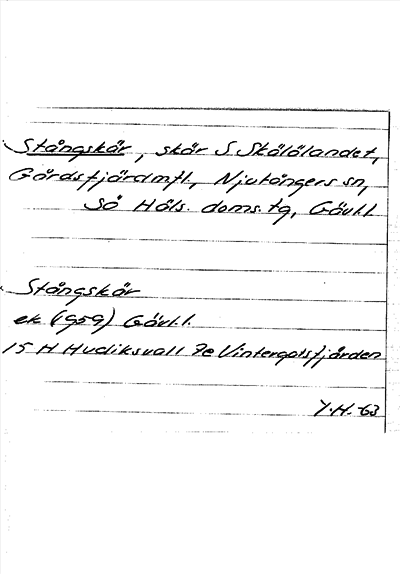 Stångskär, skär S Skålölandet,
Gårdsfjärdmfl., Njutångers sn,
Sö Häls. doms. tg, Gävl.l.
Stångskär
ek (1959) Gävl.l.
15 H Hudiksvall 7e Vintergatsfjärden
Y.H.-63